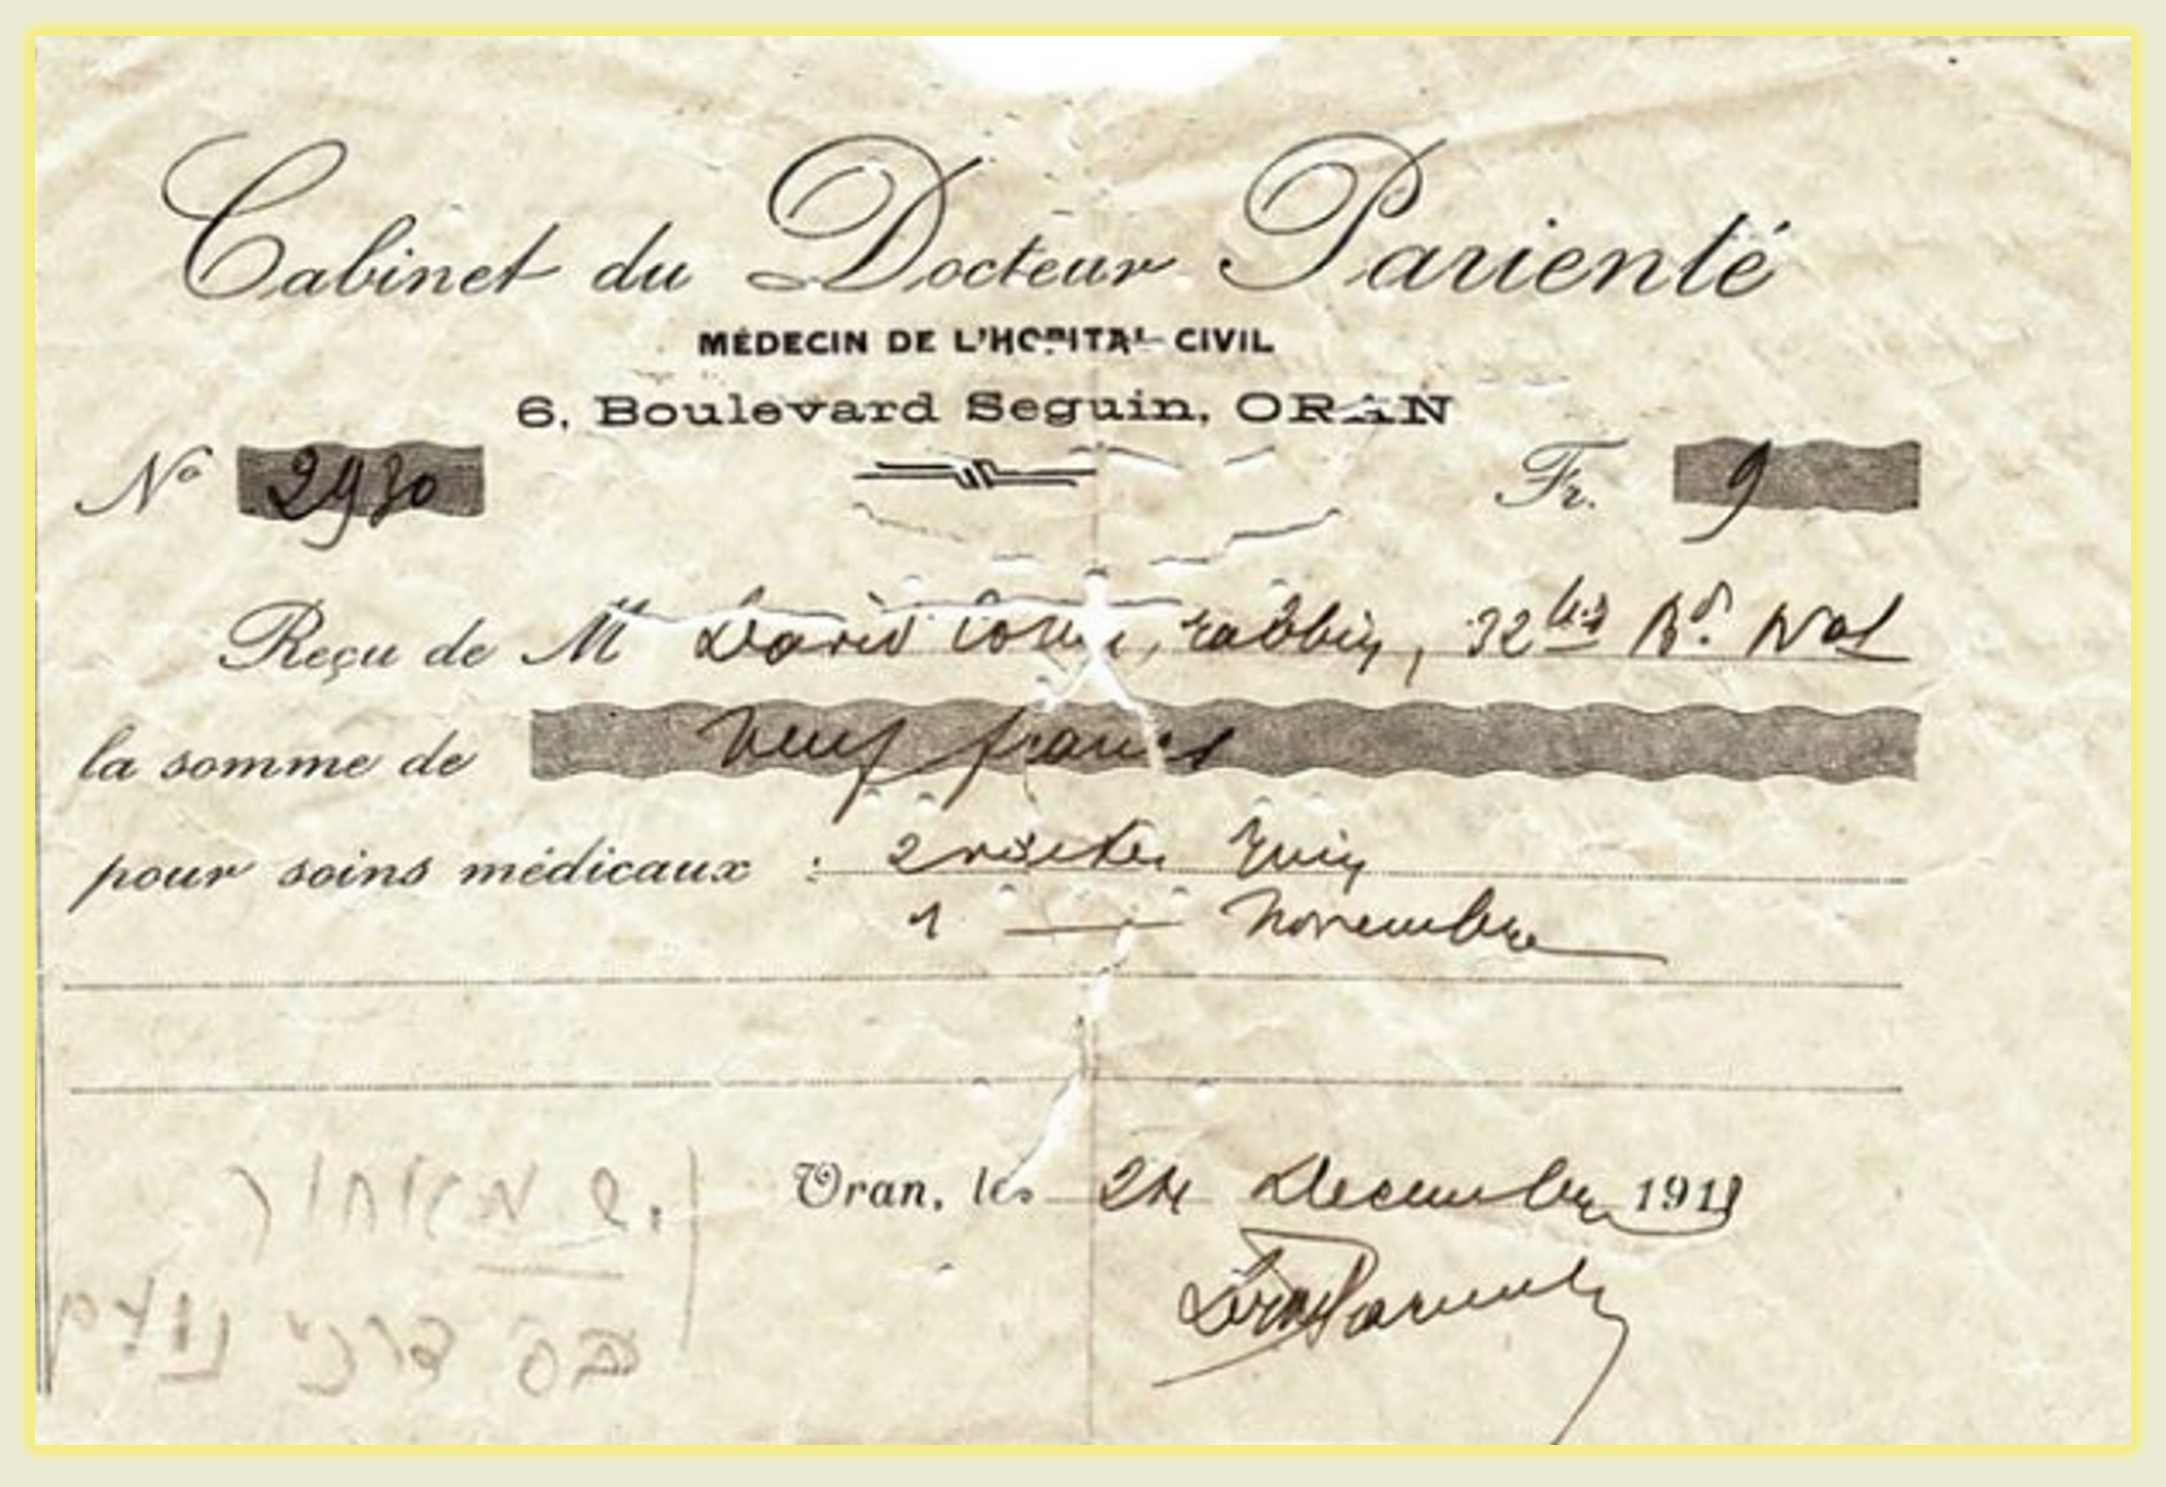 Cabinet du Docteur Parienté
MÉDECIN DE L'HOPITAL CIVIL
6, Boulevard Seguin, ORAN
No 2930 Fr. 9
Reçu de M David Cohen, rabbin, 32 bis Bd. Nal
la somme de neuf francs
pour soins médicaux : 2 visites Juin
1 — Novembre
Oran, le 24 Decembre 191